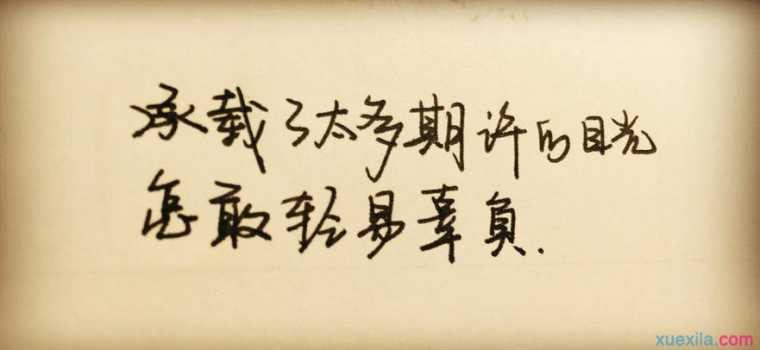 承载了太多期许的目光
怎敢轻易辜負.
xuexila.com